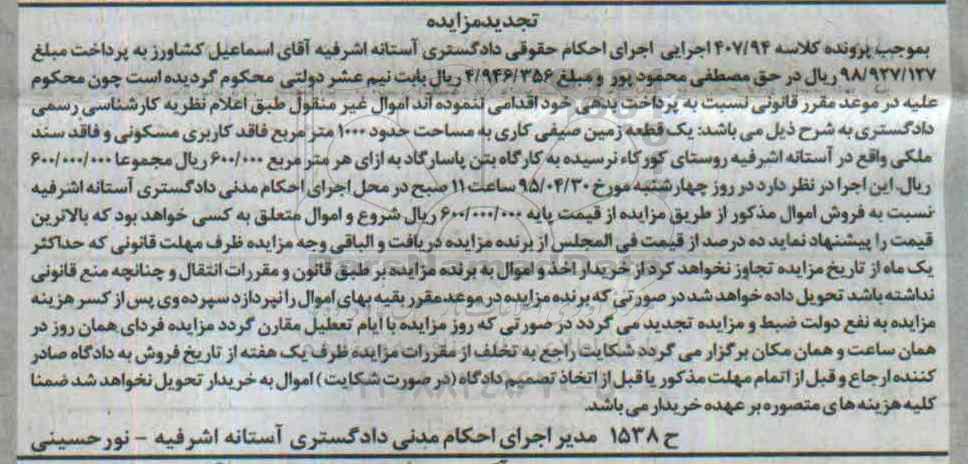 تجدیدمزایده
بموجب پرونده کلاسه ۴۰۷/۹۴ اجرایی اجرای احکام حقوقی دادگستری آستانه اشرفیه آقای اسماعیل کشاورز به پرداخت مبلغ
۹۸/۹۲۷/۱۲۷ ریال در حق مصطفی محمود پور و مبلغ ۴/۹۴۶/۳۵۶ ریال بابت نیم عشر دولتی محکوم گردیده است چون محکوم
علیه در موعد مقرر قانونی نسبت به پرداخت بدهی خود اقدامی ننموده اند اموال غیر منقول طبق اعلام نظریه کارشناسی رسمی
دادگستری به شرح ذیل می باشد: یک قطعه زمین صیفی کاری به مساحت حدود ۱۰۰۰ متر مربع فاقد کاربری مسکونی و فاقد سند
ملکی واقع در آستانه اشرفیه روستای کورکاء نرسیده به کارگاه بتن پاسارگاد به ازای هر متر مربع ۶۰۰/۰۰۰ ریال مجموعا ۶۰۰/۰۰۰/۰۰۰
ریال. این اجرا در نظر دارد در روز چهارشنبه مورخ ۹۵/۰۴/۳۰ ساعت ۱۱ صبح در محل اجرای احکام مدنی دادگستری آستانه اشرفیه
نسبت به فروش اموال مذکور از طریق مزایده از قیمت پایه ۶۰۰/۰۰۰/۰۰۰ ریال شروع و اموال متعلق به کسی خواهد بود که بالاترین
قیمت را پیشنهاد نماید ده درصد از قیمت فی المجلس از برنده مزایده دریافت و الباقی وجه مزایده ظرف مهلت قانونی که حداکثر
یک ماه از تاریخ مزایده تجاوز نخواهد کرد از خریدار اخذ و اموال به برنده مزایده بر طبق قانون و مقررات انتقال و چنانچه منع قانونی
نداشته باشد تحویل داده خواهد شد در صورتی که برنده مزایده در موعد مقرر بقیه بهای اموال را نپردازد سپرده وی پس از کسر هزینه
مزایده به نفع دولت ضبط و مزایده تجدید می گردد در صورتی که روز مزایده با ایام تعطیل مقارن گردد مزایده فردای همان روز در
همان ساعت و همان مکان برگزار می گردد شکایت راجع به تخلف از مقررات مزایده ظرف یک هفته از تاریخ فروش به دادگاه صادر
کننده ارجاع و قبل از اتمام مهلت مذکور یا قبل از اتخاذ تصمیم دادگاه (در صورت شکایت) اموال به خریدار تحویل نخواهد شد ضمنا
کلیه هزینه های متصوره بر عهده خریدار می باشد.
ح ۱۵۳۸ مدیر اجرای احکام مدنی دادگستری آستانه اشرفیه - نورحسینی